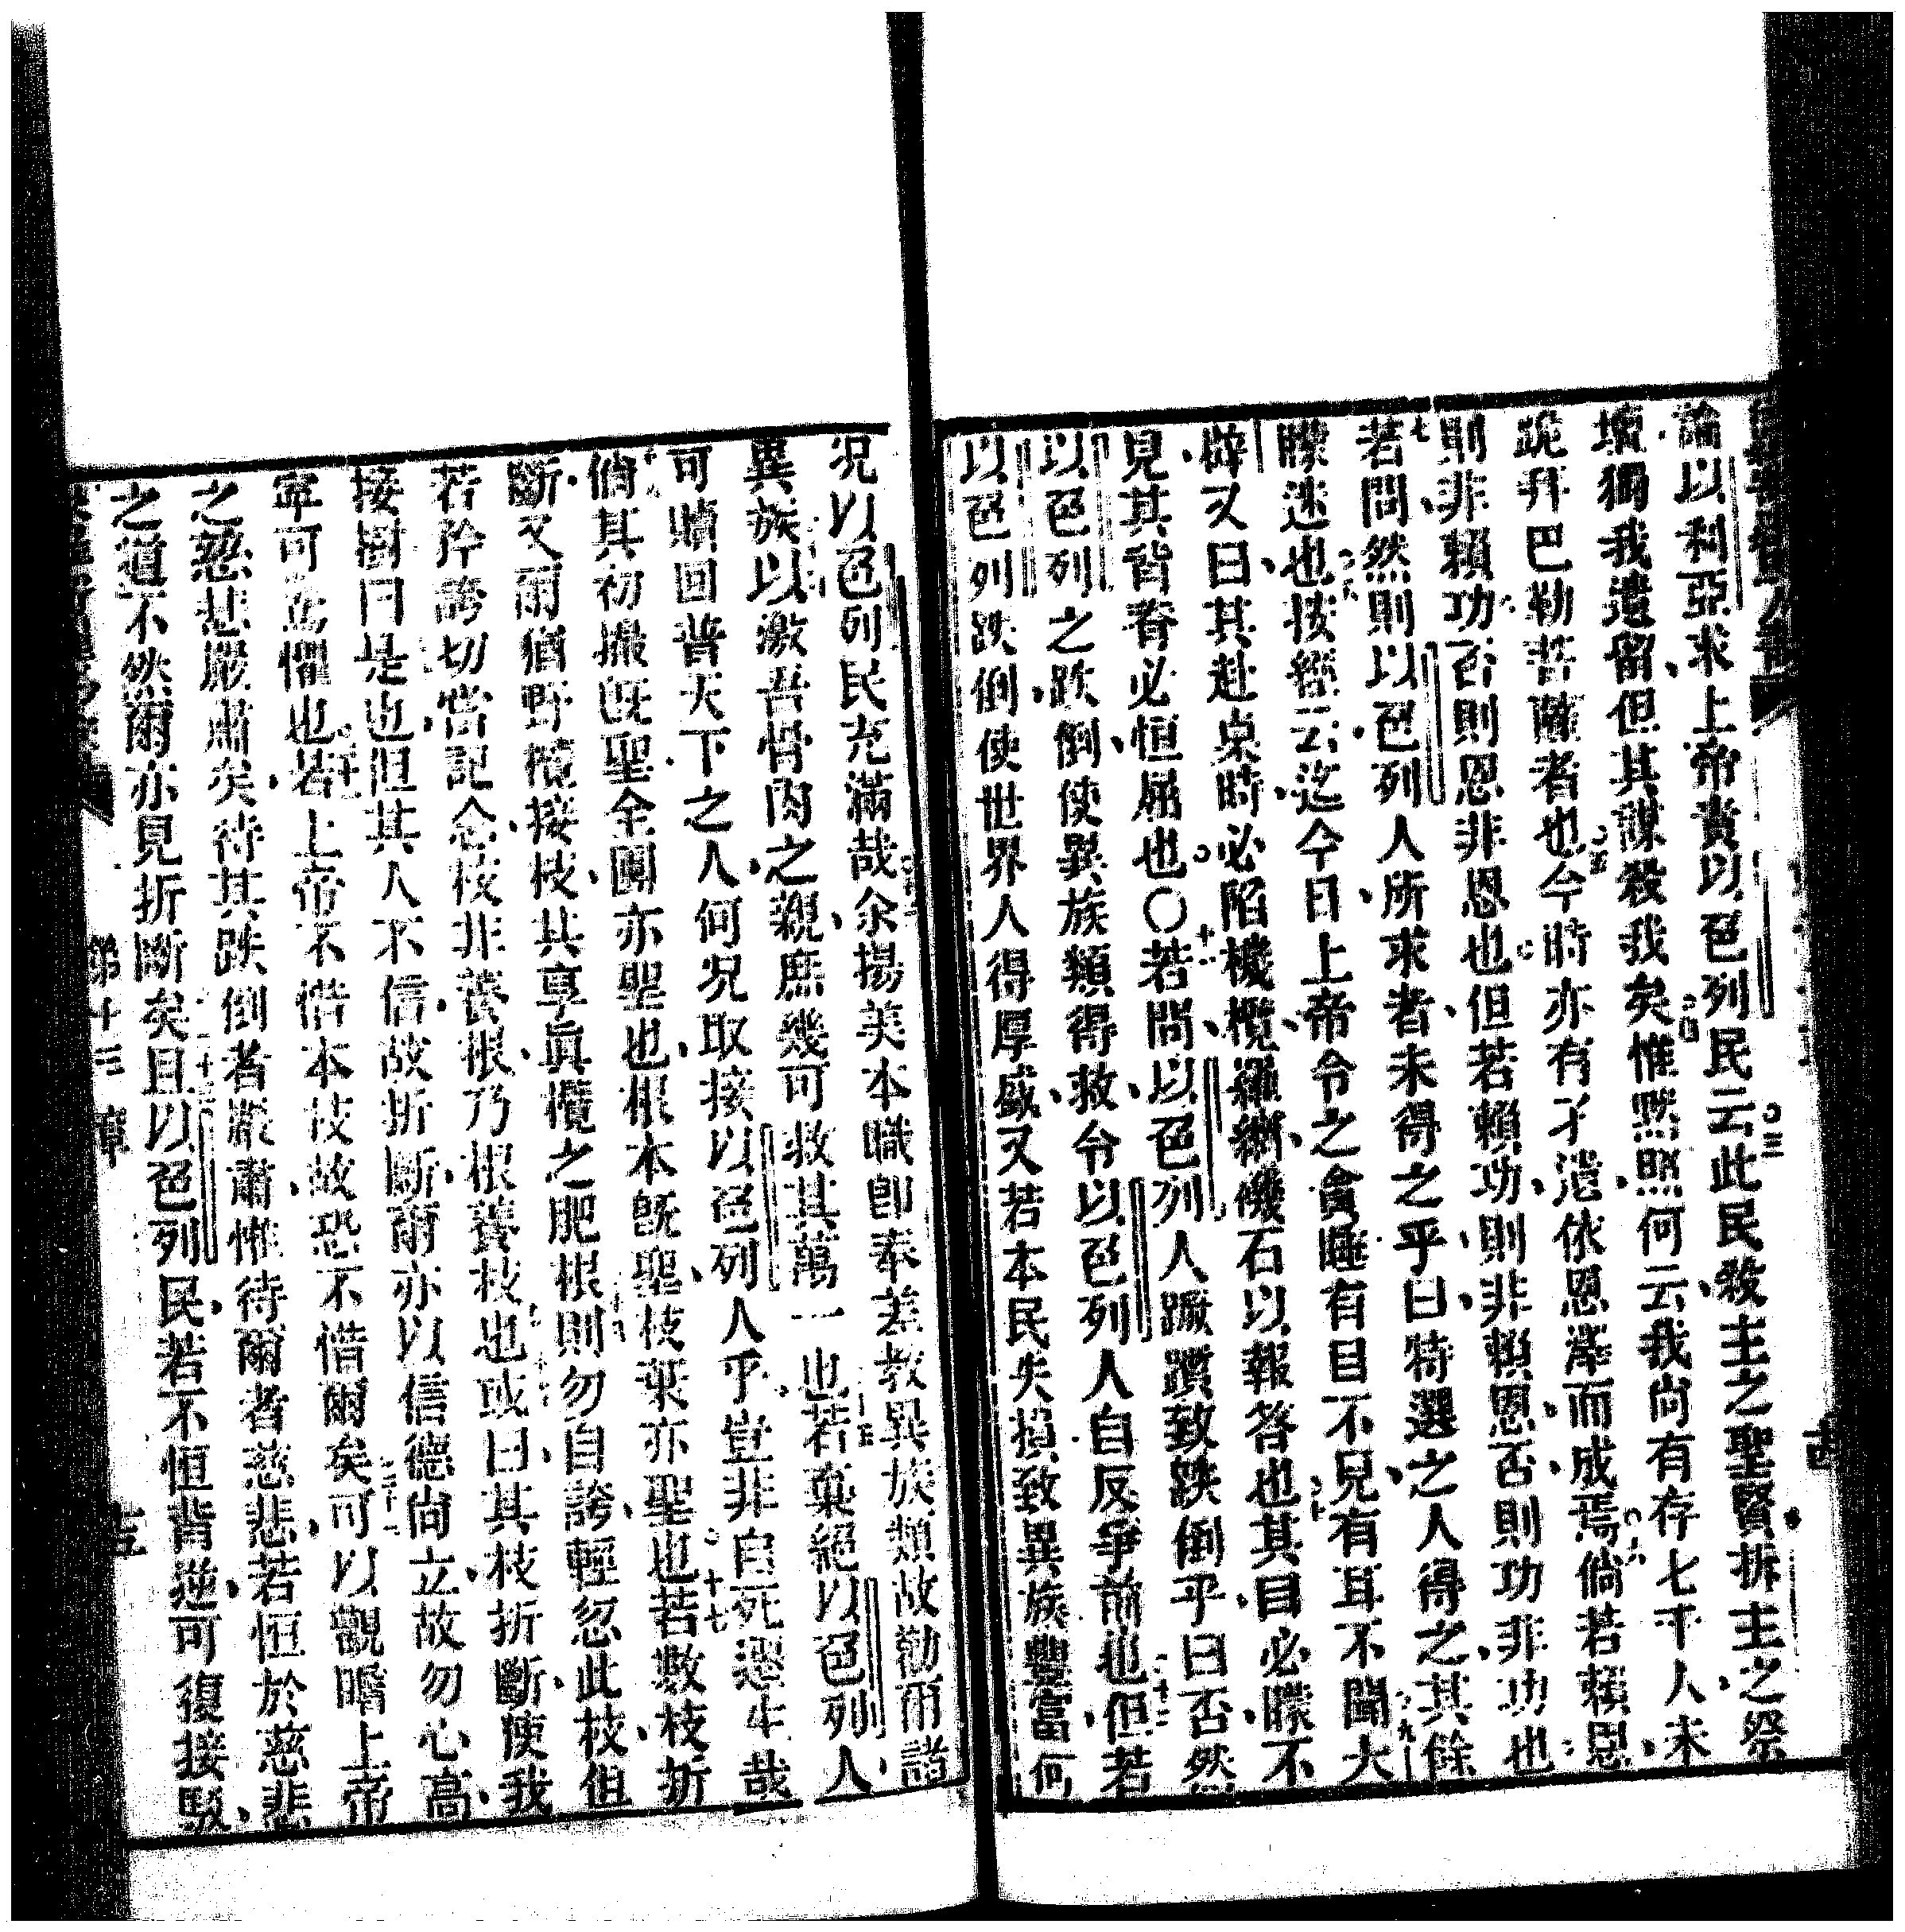 論以利亞求上帝責以色列民云此民殺主之聖賢拆主之祭
壇獨我遺留但其謀殺我矣惟默照何云我尚有存七千人未
跪拜巴勒菩薩者也今時亦有孑遺依恩澤而成焉倘若賴恩
則非賴功否則恩非恩也但若賴功則非賴恩否則功非功也
若問然則以色列人所求者未得之乎曰特選之人得之其餘
矇迷也按經云迄今日上帝令之貪睡有目不見有耳不聞大
辟又曰其赴桌時必陷機檻羅網機石以報答也其目必矇不
見其背脊必恒屈也〇若問以色列人蹶躓致跌倒乎曰否然
以色列之跌倒使異族類得救令以色列人自反爭前也但若
以色列跌倒使世界人得厚盛又若本民失損致異族豐富何
况以色列民充滿哉余揚美本職即奉差教異族類故勸爾諸
異族以激吾骨肉之親庶幾可救其萬一也若棄絕以色列人
可贖回普天下之人何况取接以色列人乎豈非自死還生哉
倘其初撮既聖全團亦聖也根本既聖枝葉亦聖也若數枝折
斷又爾猶野欖接枝其享眞欖之肥根則勿自誇輕忽此枝但
若矜誇切當記念枝非養根乃根養枝也或曰其枝折斷使我
接樹曰是也但其人不信故折斷爾亦以信德尚立故勿心高
寧可畏懼也若上帝不惜本枝故恐不惜爾矣可以觀瞻上帝
之慈悲嚴肅矣待其跌倒者嚴肅惟待爾者慈悲若恒於慈悲
之道不然爾亦見折斷矣且以色列民若不恒背逆可復接駁
第十三章